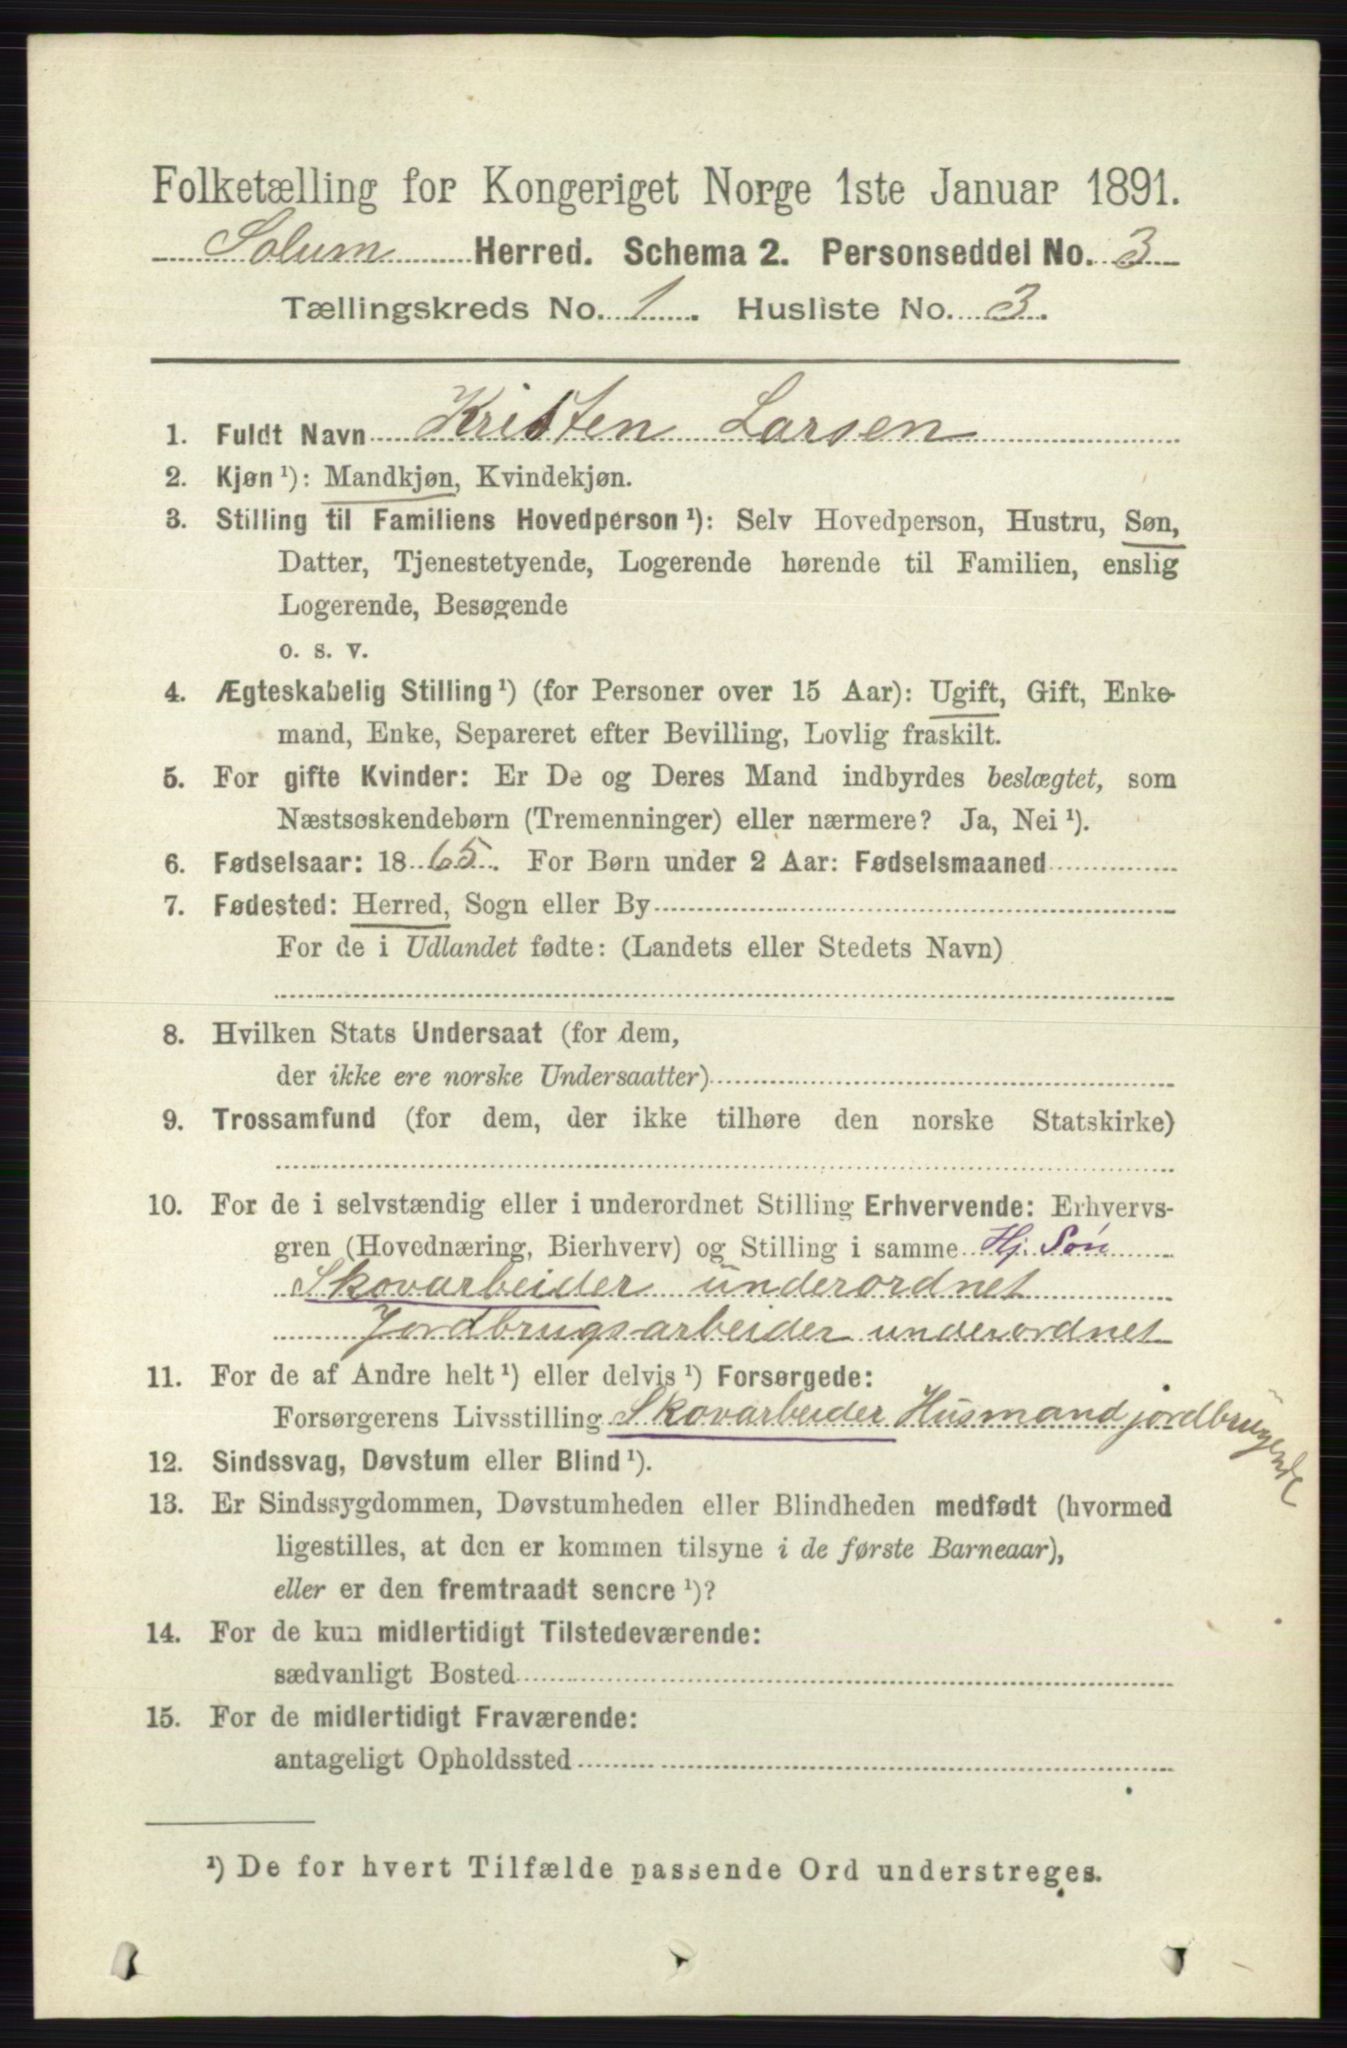 Folketælling for Kongeriget Norge 1ste Januar 1891.
Solum Herred. Schema 2. Personseddel No. 3
Tællingskreds No. 1. Husliste No. 3.
1. Fuldt Navn Kristen Larsen
2. Kjøn ¹): Mandkjøn, Kvindekjøn.
3. Stilling til Familiens Hovedperson ¹): Selv Hovedperson, Hustru, Søn,
Datter, Tjenestetyende, Logerende hørende til Familien, enslig
Logerende, Besøgende
o. s. v.
4. Ægteskabelig Stilling ¹) (for Personer over 15 Aar): Ugift, Gift, Enke-
mand, Enke, Separeret efter Bevilling, Lovlig fraskilt.
5. For gifte Kvinder: Er De og Deres Mand indbyrdes beslægtet, som
Næstsøskendebørn (Tremenninger) eller nærmere? Ja, Nei ¹).
6. Fødselsaar: 1865. For Børn under 2 Aar: Fødselsmaaned
7. Fødested: Herred, Sogn eller By
For de i Udlandet fødte: (Landets eller Stedets Navn)
8. Hvilken Stats Undersaat (for dem,
der ikke ere norske Undersaatter)
9. Trossamfund (for dem, der ikke tilhøre den norske Statskirke)
10. For de i selvstændig eller i underordnet Stilling Erhvervende: Erhvervs-
gren (Hovednæring, Bierhverv) og Stilling i samme Hj. Søn
Skovarbeider underordnet
Jordbrugsarbeider underordnet
11. For de af Andre helt ¹) eller delvis ¹) Forsørgede:
Forsørgerens Livsstilling Skovarbeider Husmand jordbrugende
12. Sindssvag, Døvstum eller Blind ¹).
13. Er Sindssygdommen, Døvstumheden eller Blindheden medfødt (hvormed
ligestilles, at den er kommen tilsyne i de første Barneaar),
eller er den fremtraadt senere ¹)?
14. For de kun midlertidigt Tilstedeværende:
sædvanligt Bosted
15. For de midlertidigt Fraværende:
antageligt Opholdssted
¹) De for hvert Tilfælde passende Ord understreges.